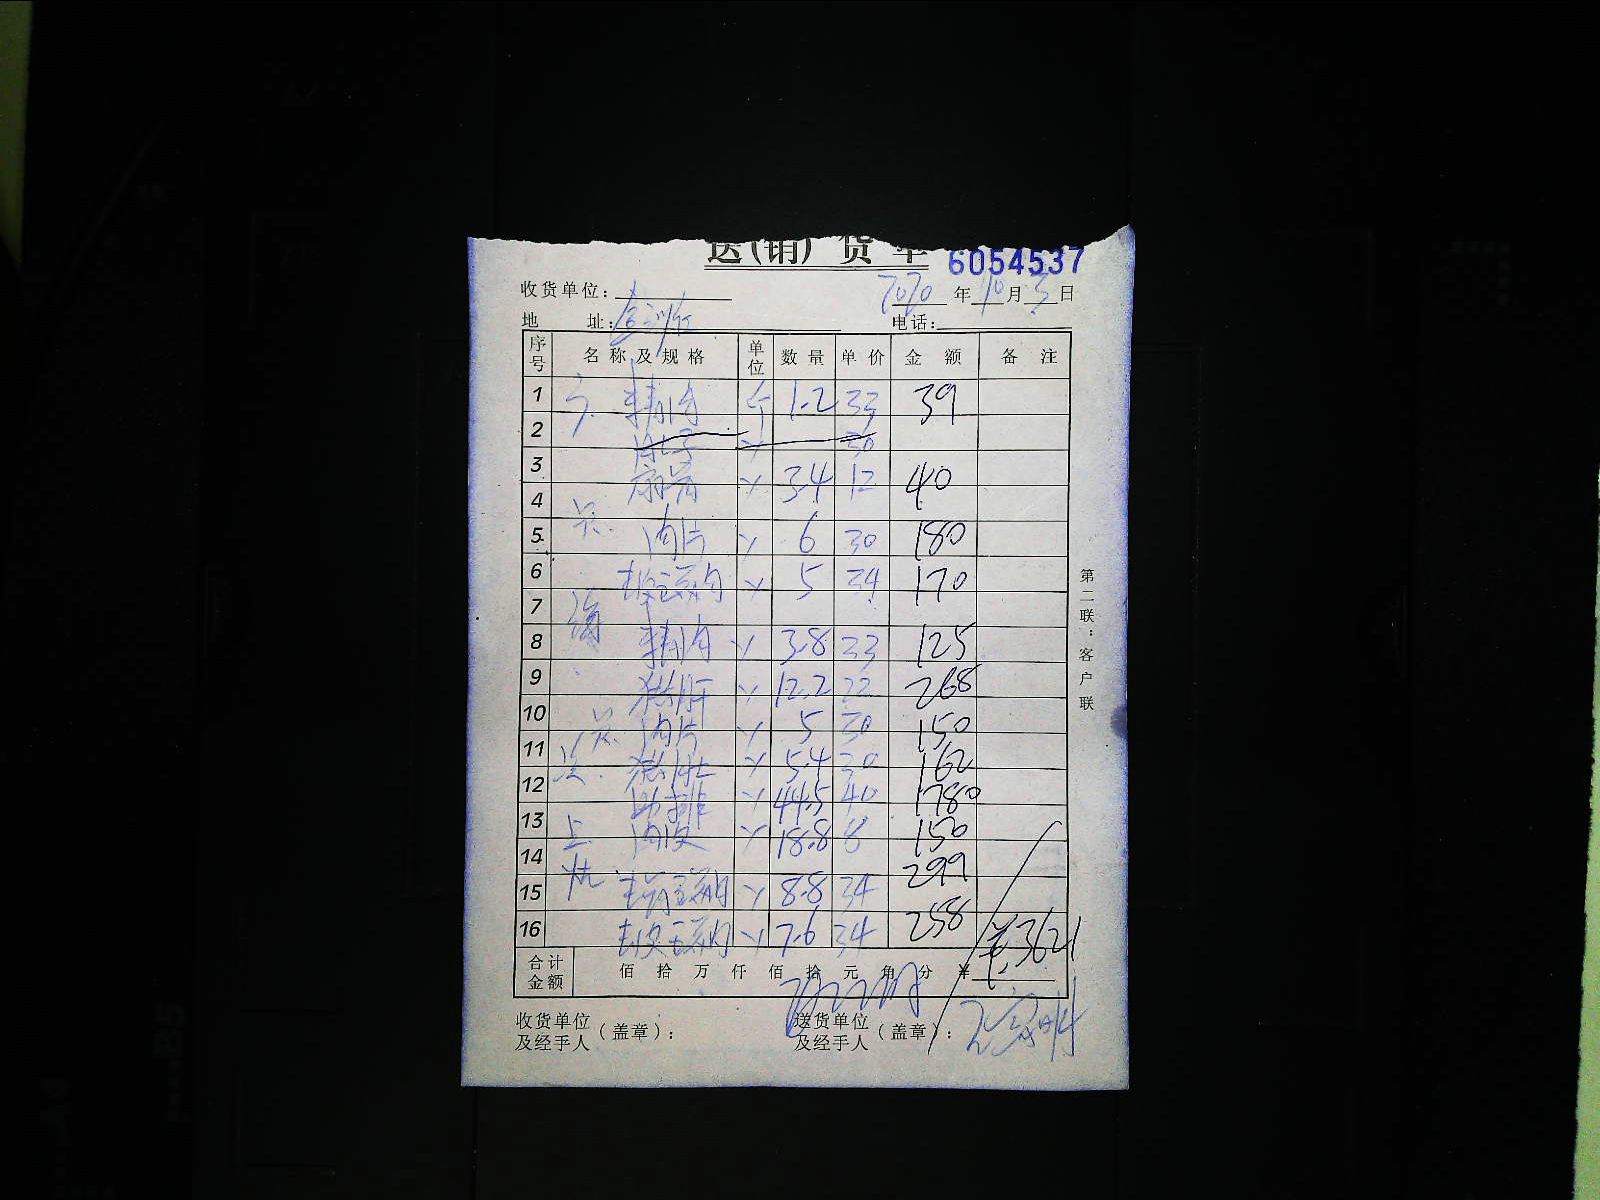 送(销)货单 6054537
收货单位: 2020年10月3日
地 址: 电话:
序号 名称及规格 单位 数量 单价 金额 备注
1 精肉 1.2 33 39
2 30
3 3.4 12 40
4
5 肉片 6 30 180
6 5 34 170
7
8 精肉 3.8 33 125
9 猪肝 12.2 22 268
10 肉片 5 30 150
11 猪肚 5.4 30 162
12 肋排 44.5 40 1780
13 肉皮 18.8 8 150
14 299
15 8.8 34
16 7.6 34 258 ¥3621
合计金额 佰拾万仟佰拾元角分 ¥
收货单位及经手人(盖章): 送货单位及经手人(盖章):
第二联:客户联